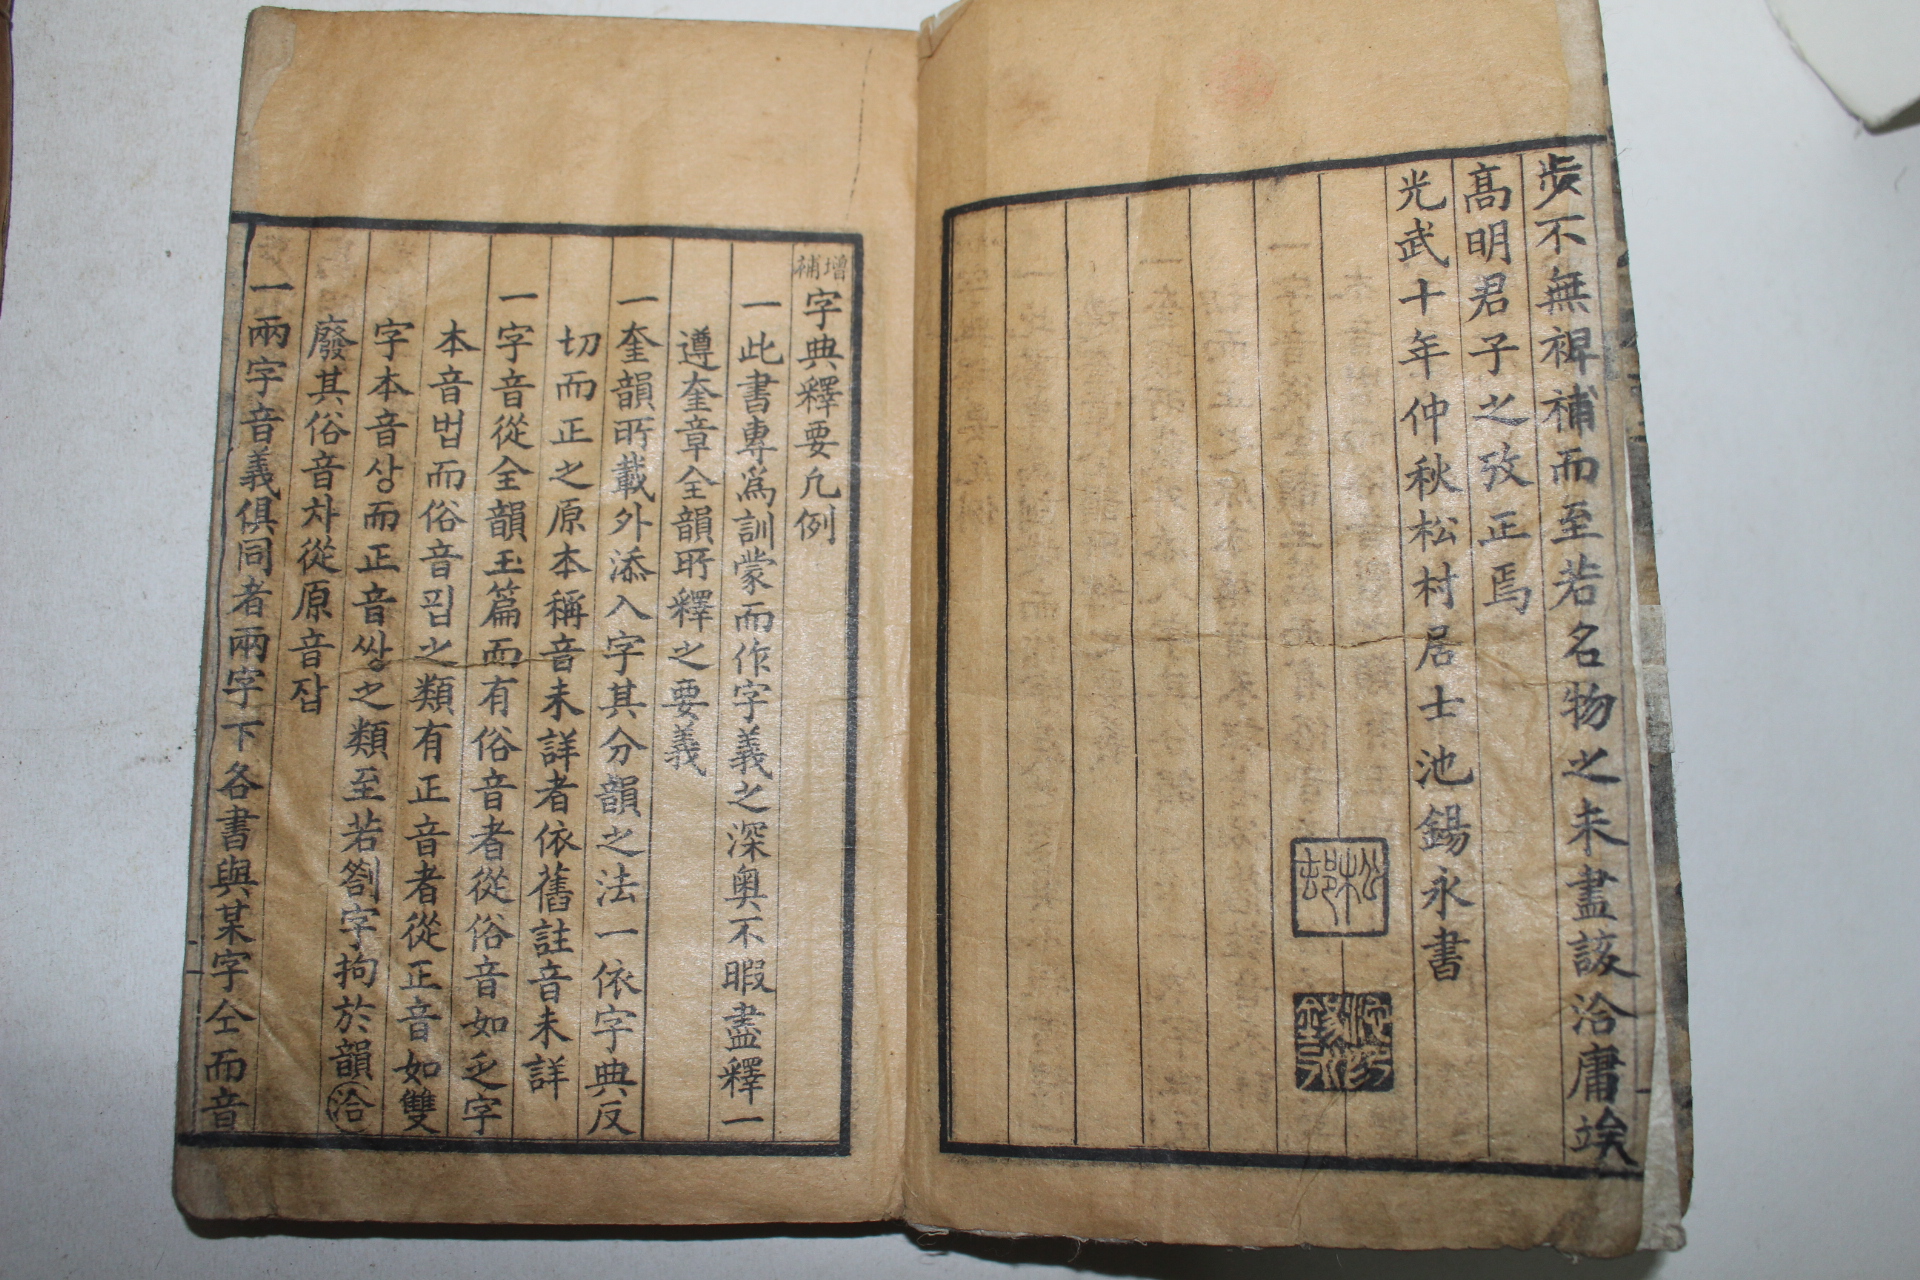 歩不無裨補而至若名物之未盡該洽庸竢
高明君子之攷正焉
光武十年仲秋松村居士池錫永書
松邨
池錫永
增補字典釋要凡例
一此書專爲訓蒙而作字義之深奧不暇盡釋一
遵奎章全韻所釋之要義
一奎韻所載外添入字其分韻之法一依字典反
切而正之原本稱音未詳者依舊註音未詳
一字音從全韻玉篇而有俗音者從俗音如乏字
本音법而俗音핍之類有正音者從正音如雙
字本音상而正音쌍之類至若劄字拘於韻洽
廢其俗音차從原音잡
一兩字音義俱同者兩字下各書與某字仝而音